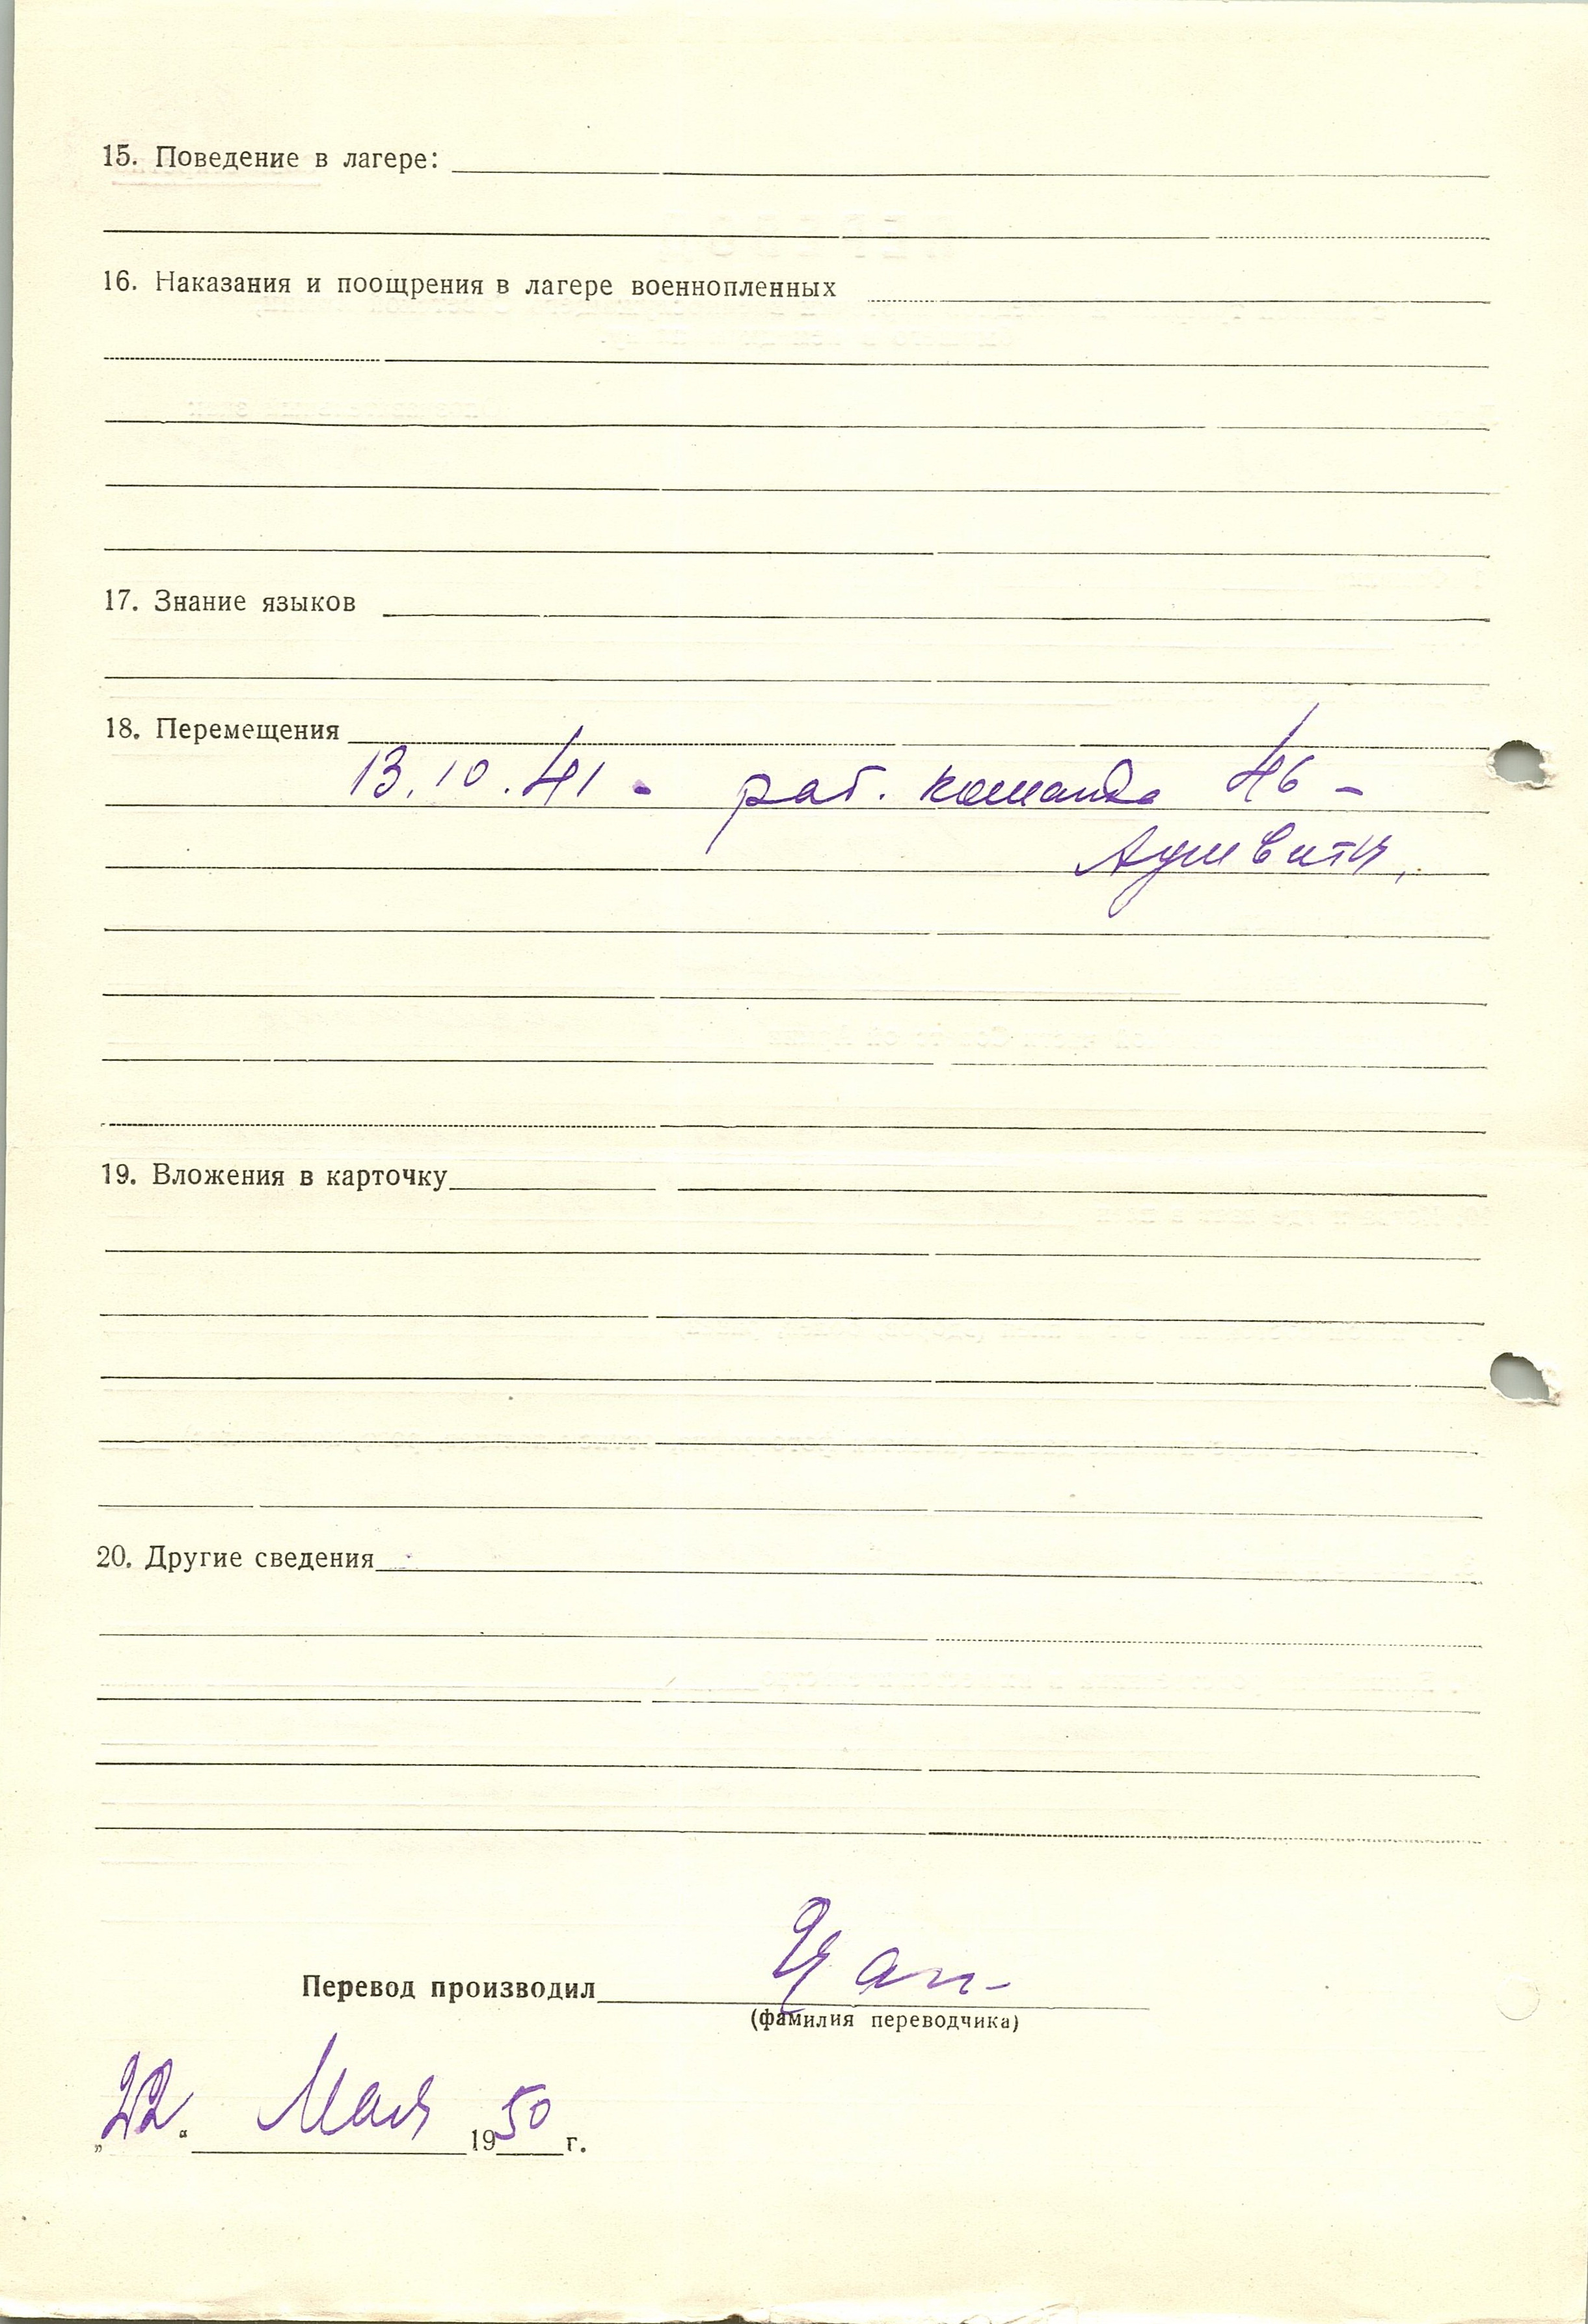 15. Поведение в лагере:
16. Наказания и поощрения в лагере военнопленных
17. Знание языков
18. Перемещения
13.10.41 - раб. команда 46 -
Аушвитц,
19. Вложения в карточку
20. Другие сведения
Перевод производил
(фамилия переводчика)
„22“ Мая 1950 г.